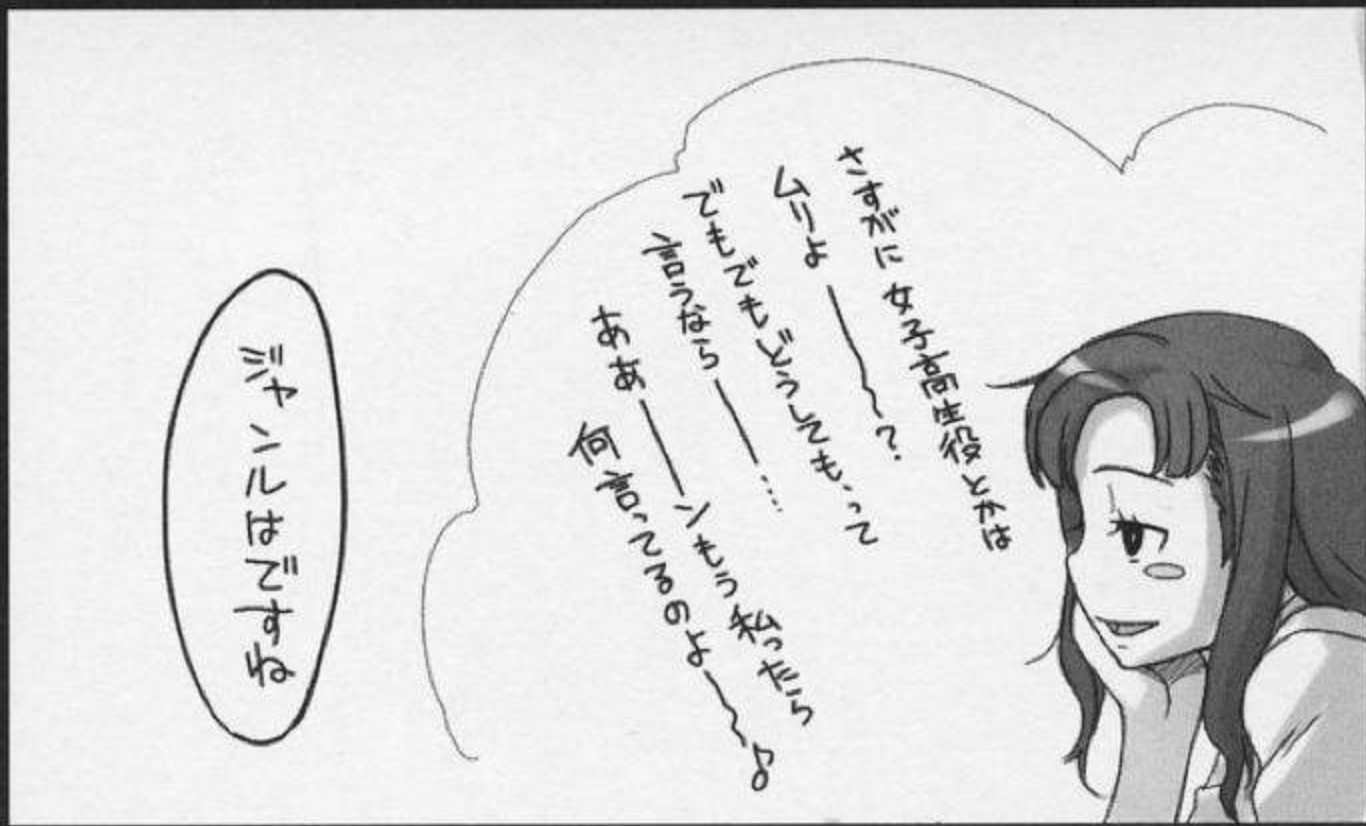 さすがに女子高生役とかは
ムリよ――～?
でもでもどうしても…って
言うなら――…
ああ――ンもう私ったら
何言ってるのよ～～♪
ジャンルはですね